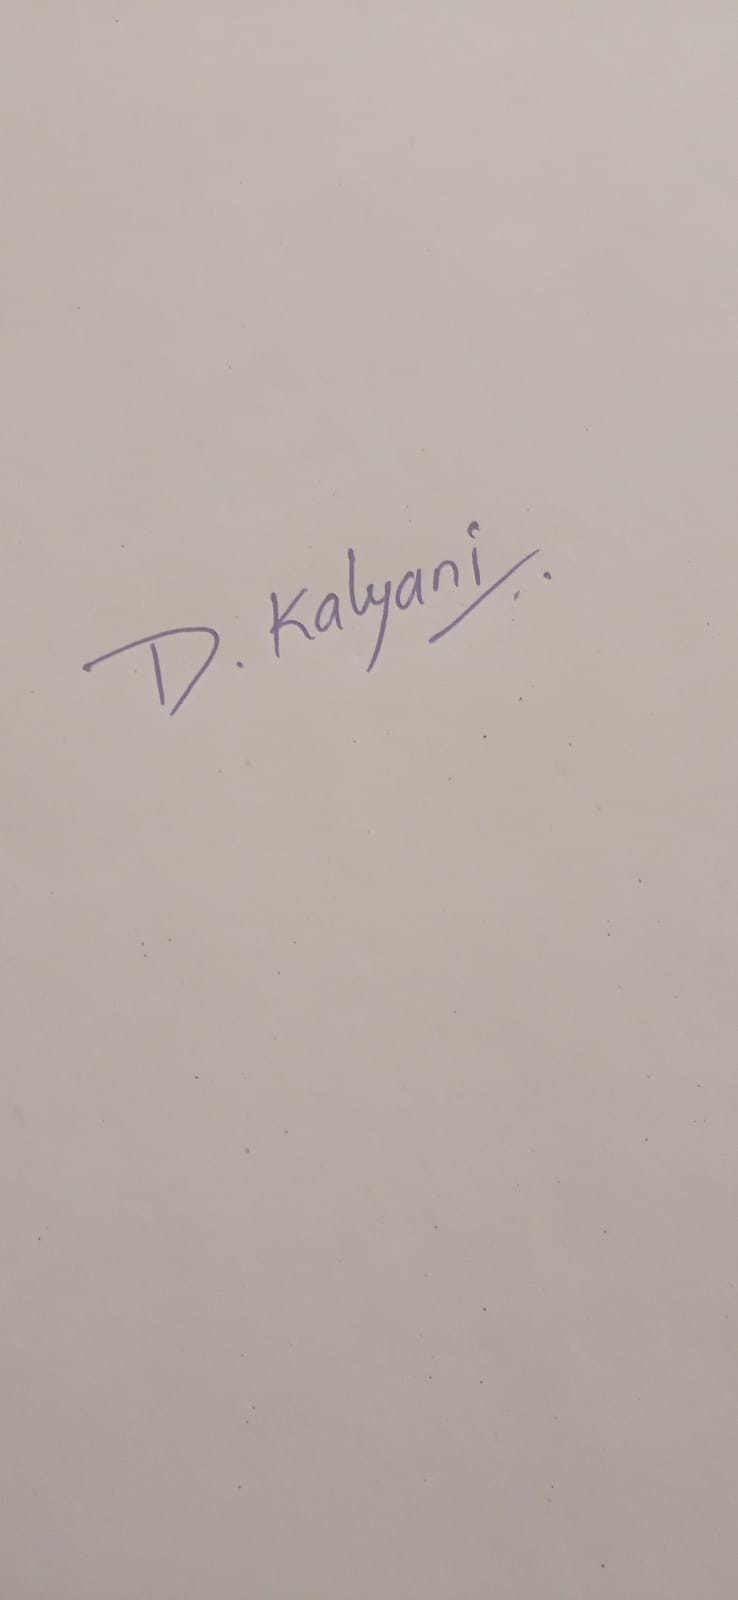 D. Kalyani